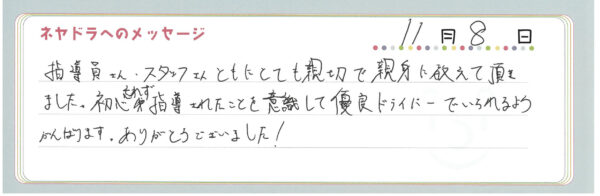 ネヤドラへのメッセージ
11月8日
指導員さん・スタッフさんともにとても親切で親身に教えて頂き
ました。初心忘れず指導されたことを意識して優良ドライバーでいられるよう
がんばります。ありがとうございました!